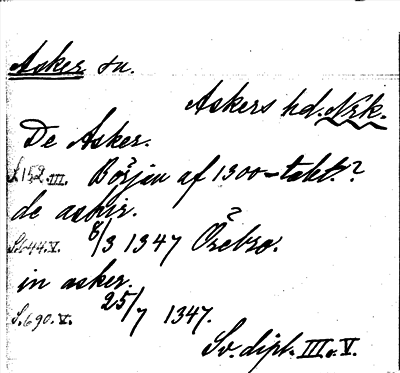 Asker sn.
Askers hd. Nrk.
De Asker.
S.152.III. Början af 1300-talet.?
de askir.
S.644.V. 8/3 1347 Örebro.
in asker.
S.690.V. 25/7 1347.
Sv. dipl. III o. V.